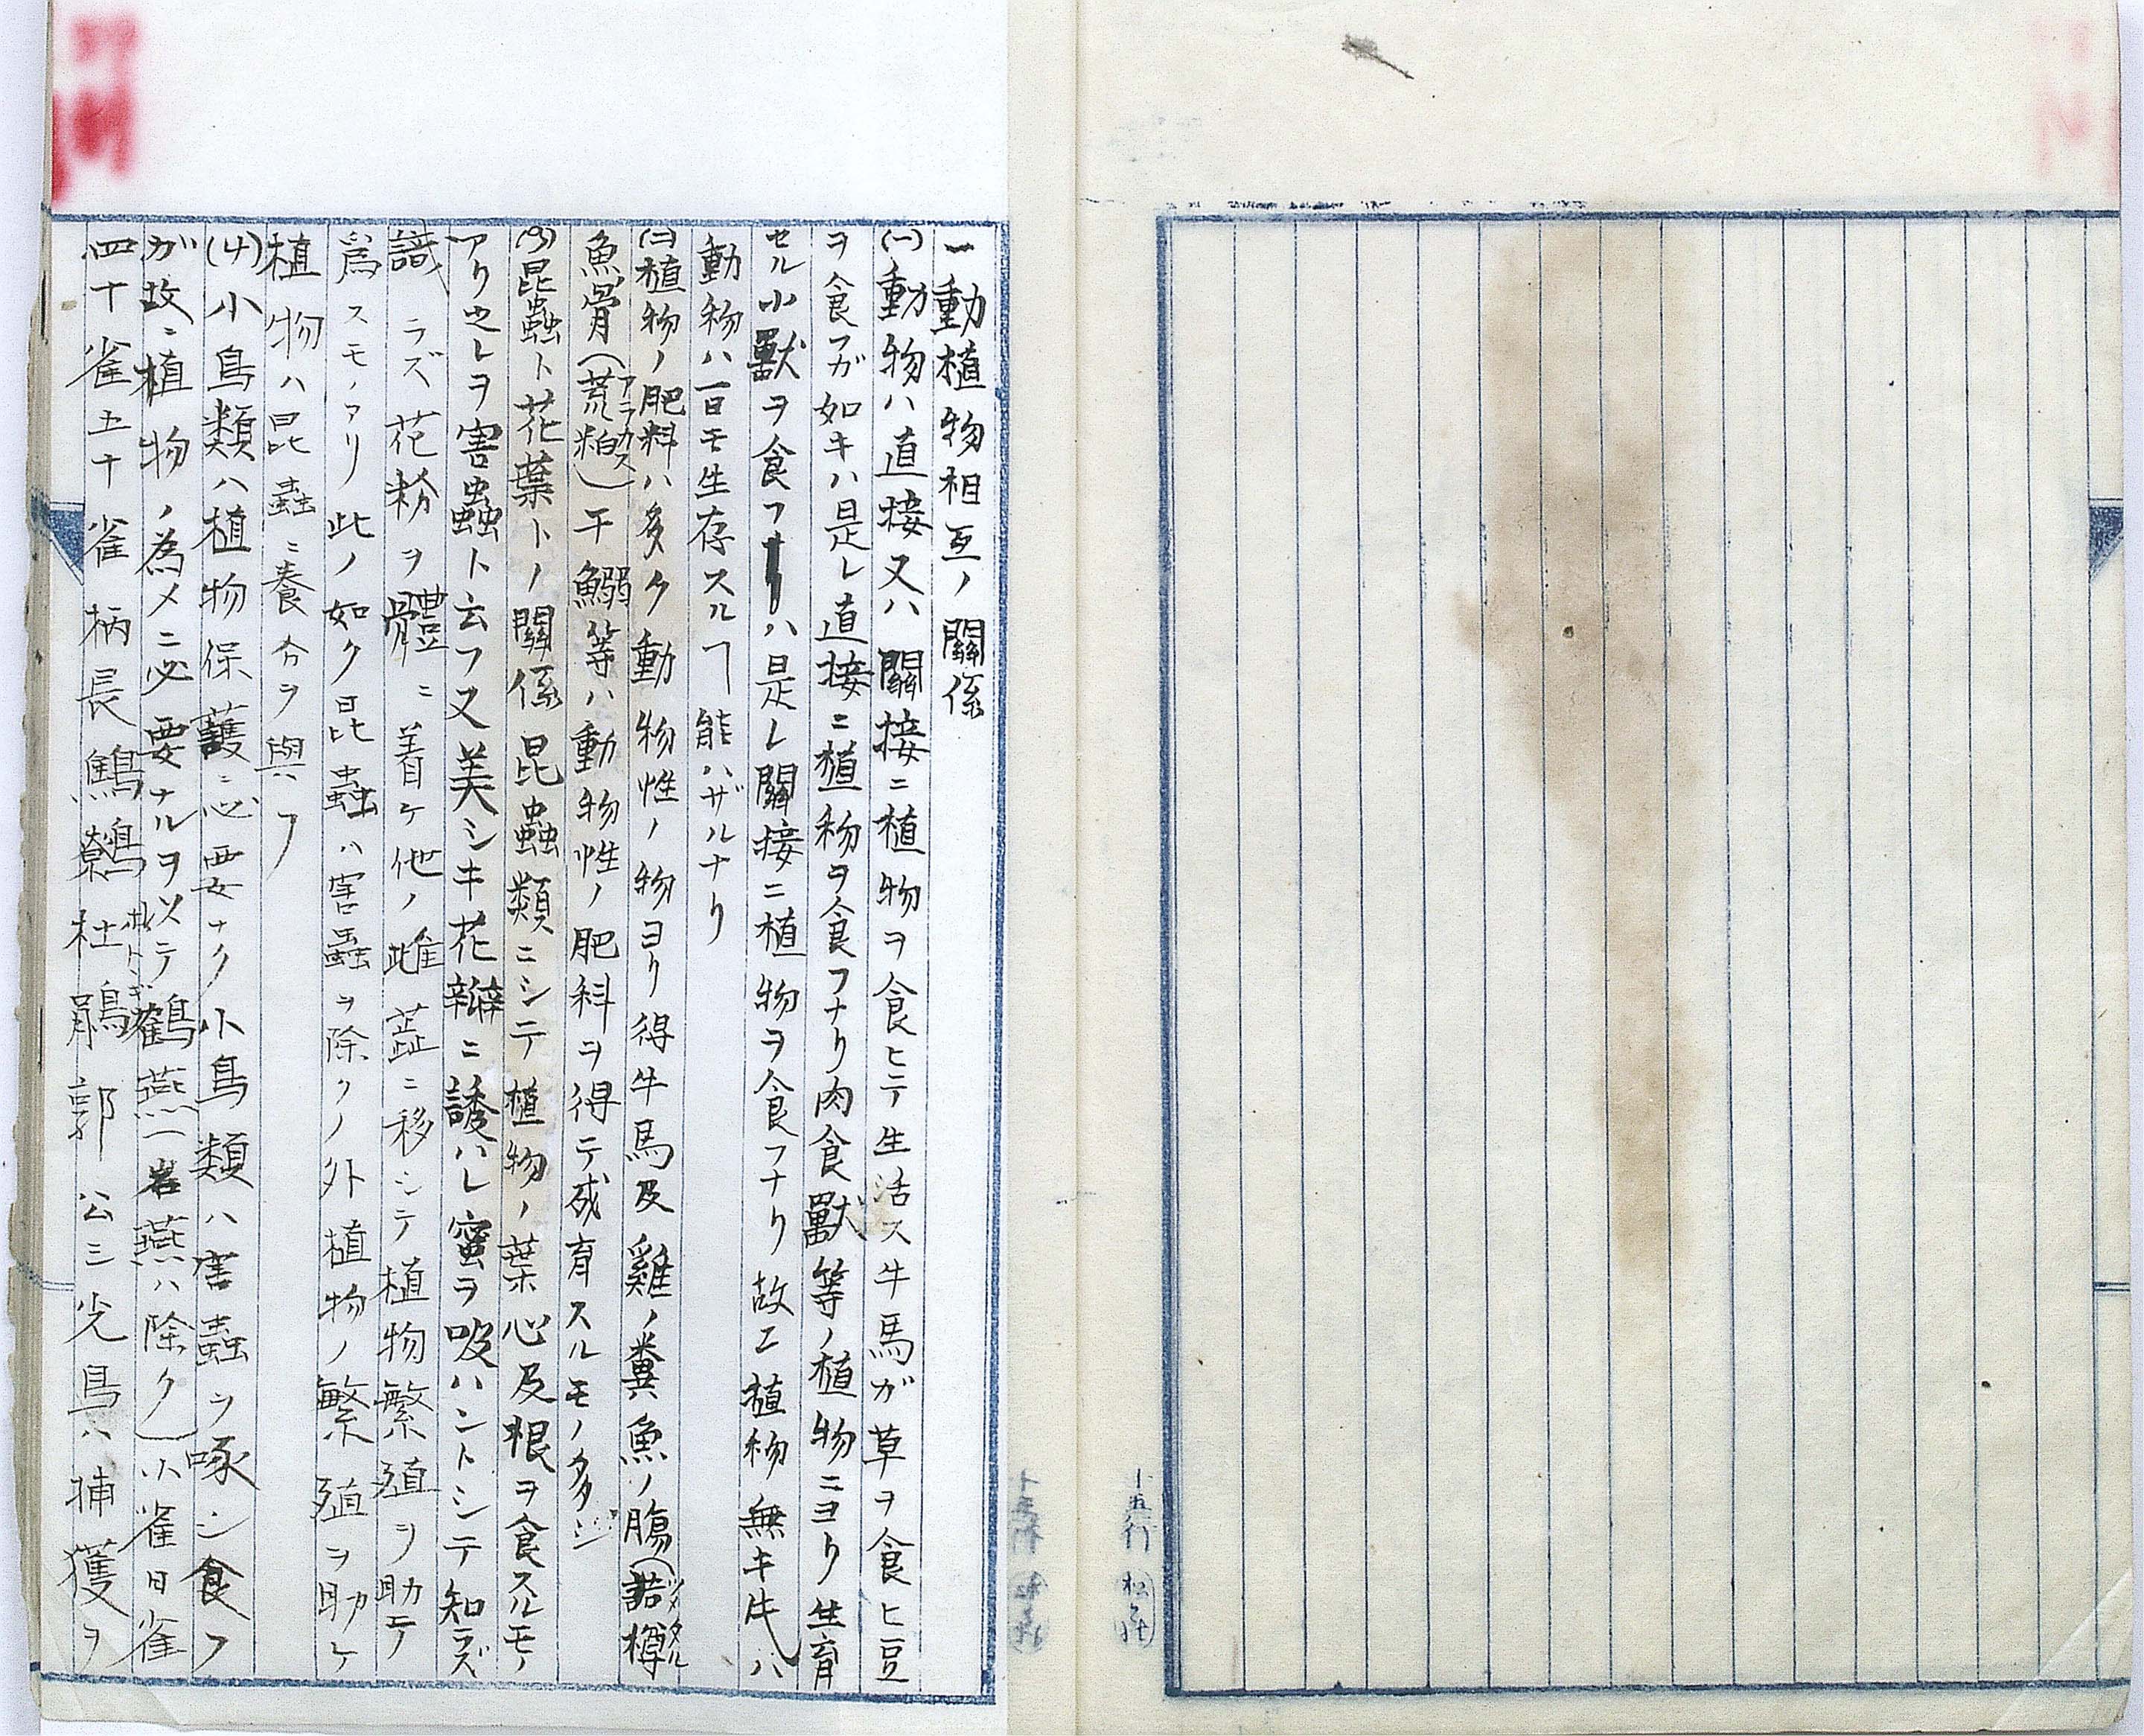 一動植物相互ノ關係
(一)動物ハ直接又ハ關接ニ植物ヲ食ヒテ生活ス牛馬ガ草ヲ食ヒ豆
ヲ食フガ如キハ是レ直接ニ植物ヲ食フナリ肉食獸等ノ植物ニヨリ生育
セル小獸ヲ食フハ是レ關接ニ植物ヲ食フナリ故エ植物無キ片ハ
動物ハ一日モ生存スルヿ能ハザルナリ
(二)植物ノ肥料ハ多ク動物性ノ物ヨリ得牛馬及雞ノ糞魚ノ膓(詰樽
ツメタル
魚骨(荒粕)干鰯等ハ動物性ノ肥料ヲ得テ成育スルモノ多シ
アラカス
(3)昆蟲ト花葉トノ關係 昆蟲類ニシテ植物ノ葉心及根ヲ食スルモノ
アリ之レヲ害蟲ト云フ又美シキ花瓣ニ誘ハレ蜜ヲ吸ハントシテ知ラズ
識ラズ花粉ヲ體ニ着ケ他ノ雌蕋ニ移シテ植物繁殖ヲ助モ
爲スモノアリ此ノ如ク昆蟲ハ害蟲ヲ除クノ外植物ノ繁殖ヲ助ケ
植物ハ昆蟲ニ養分ヲ與フ
(4)小鳥類ハ植物保護ニ必要ナリ小鳥類ハ害蟲ヲ啄シ食フ
ガ故ニ植物ノ為メニ必要ナルヲ以テ鶴燕(岩燕ハ除ク)小雀日雀
四十雀五十雀柄長鷦鷯杜鵑郭公三光鳥ハ捕獲ヲ
十五行 松